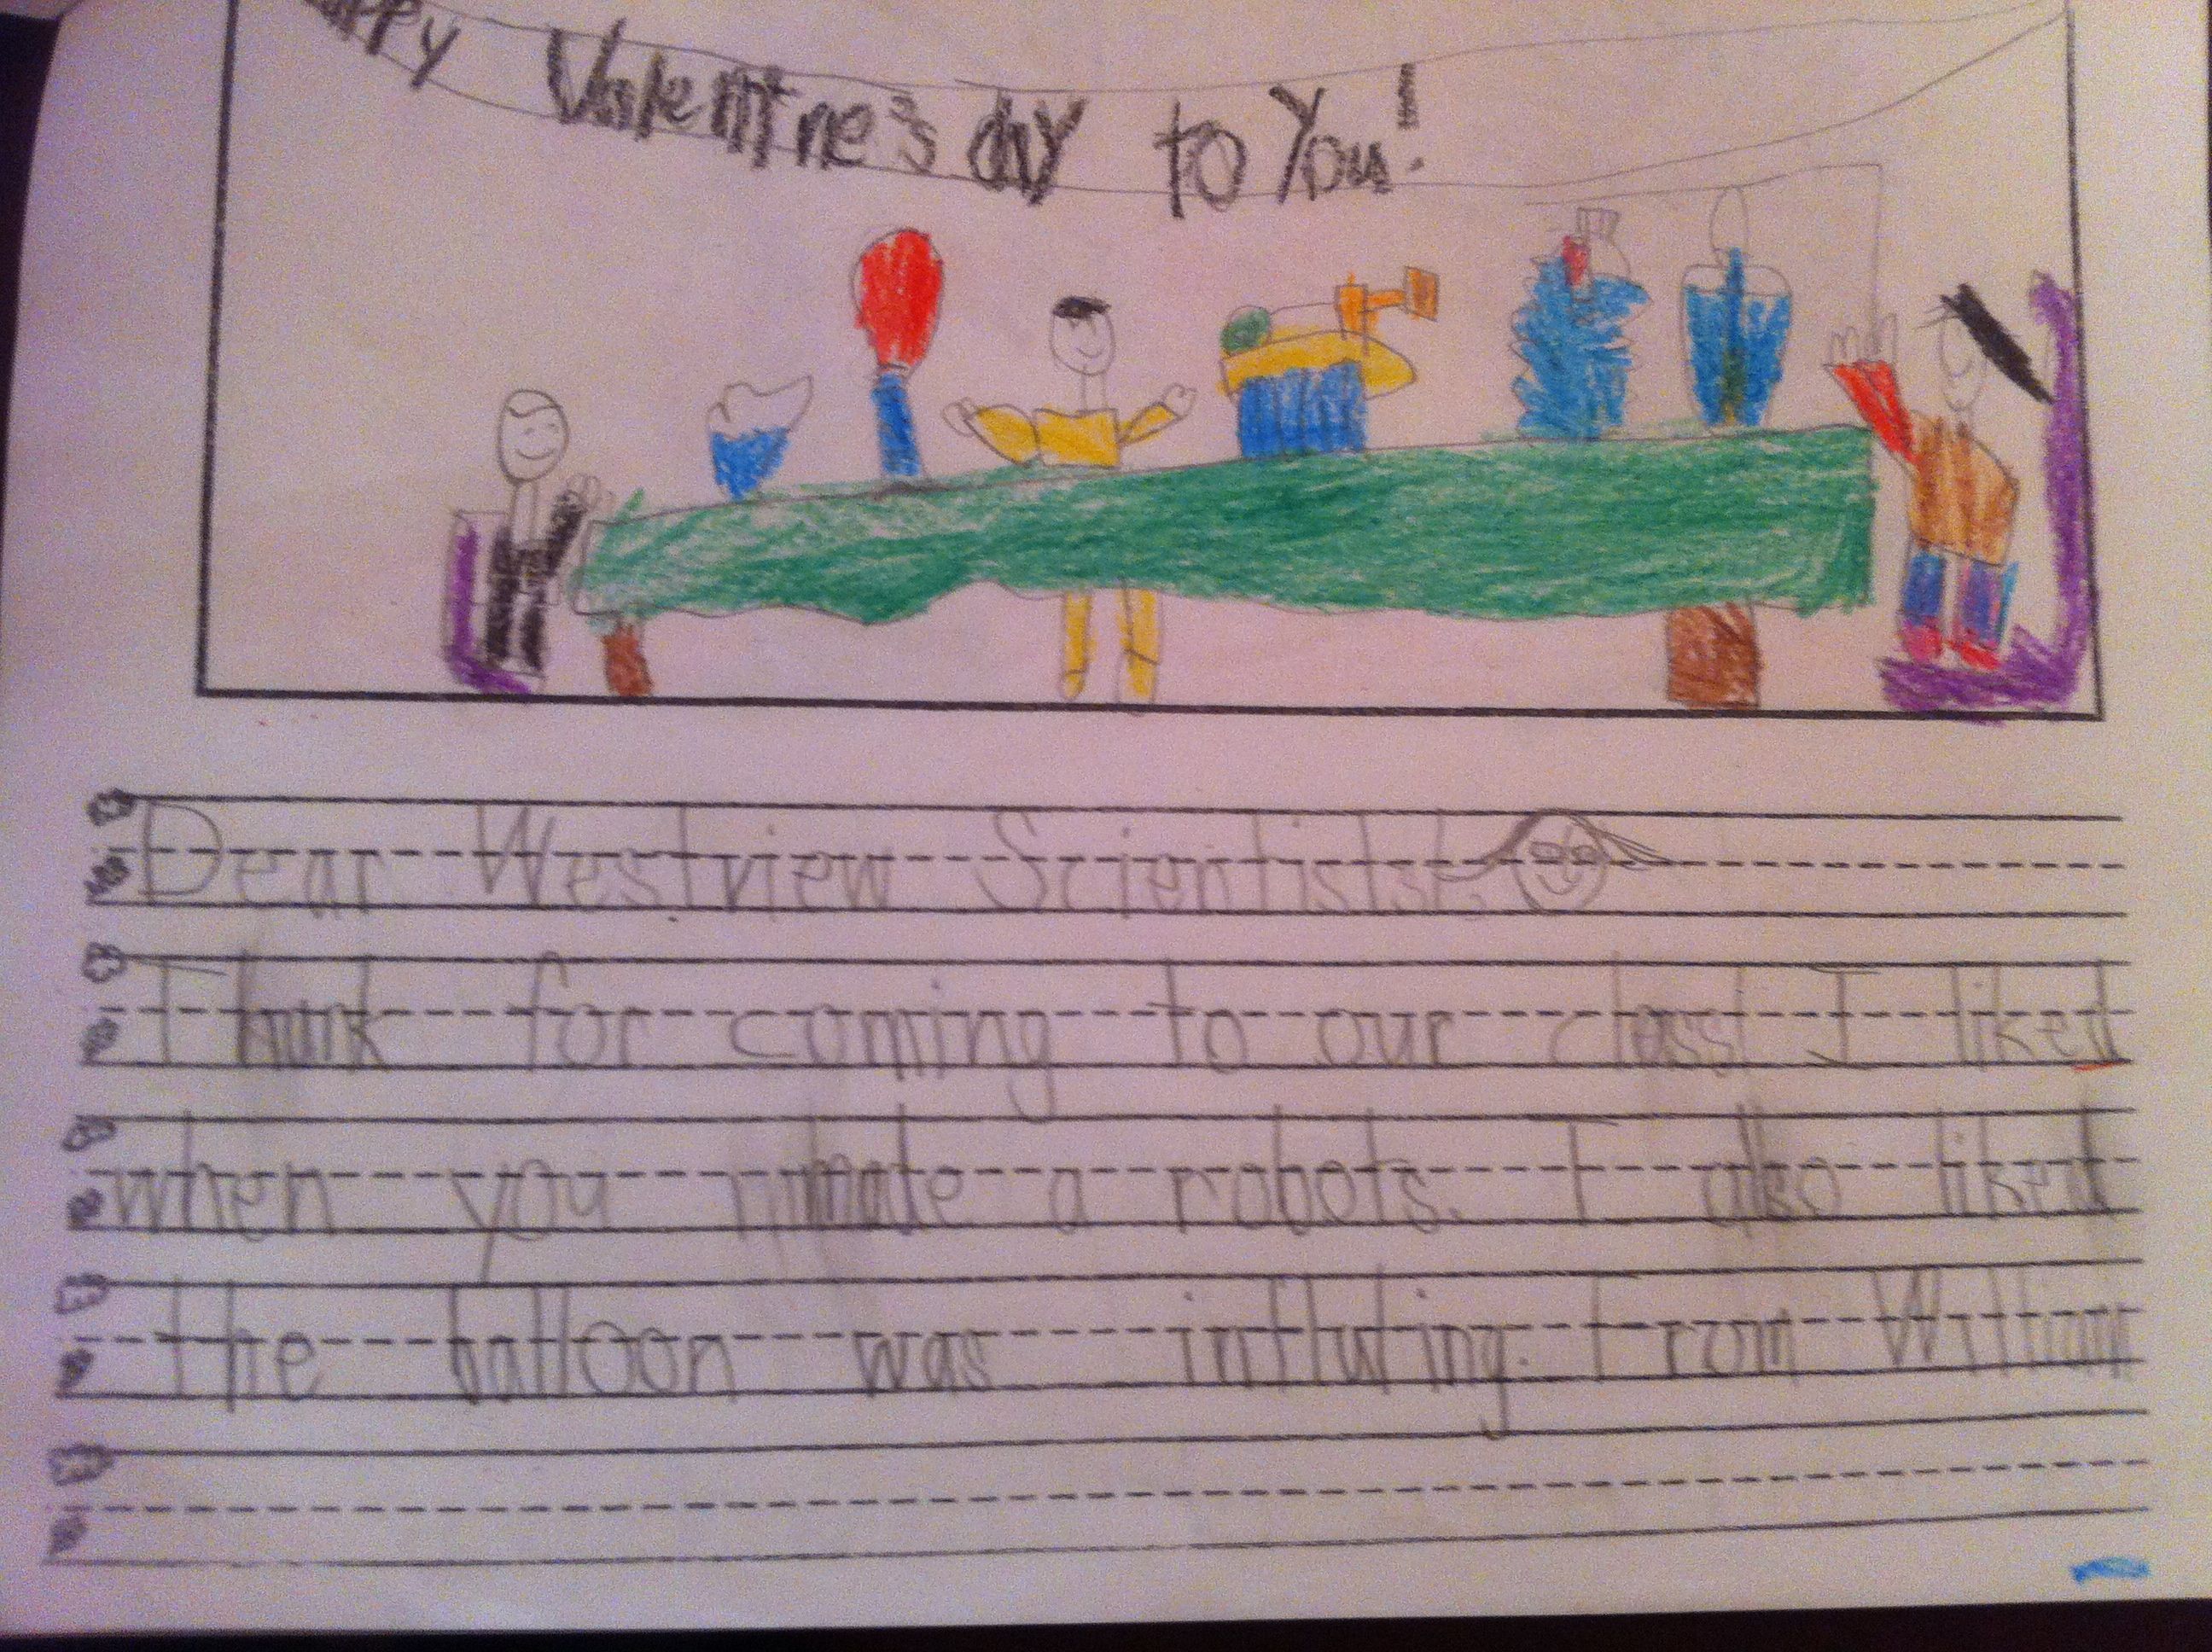 appy Valentine's day to You!
Dear Westview Scientists!,
Thank for coming to our class! I liked
when you made a robots. I also liked
the balloon was influting. From William